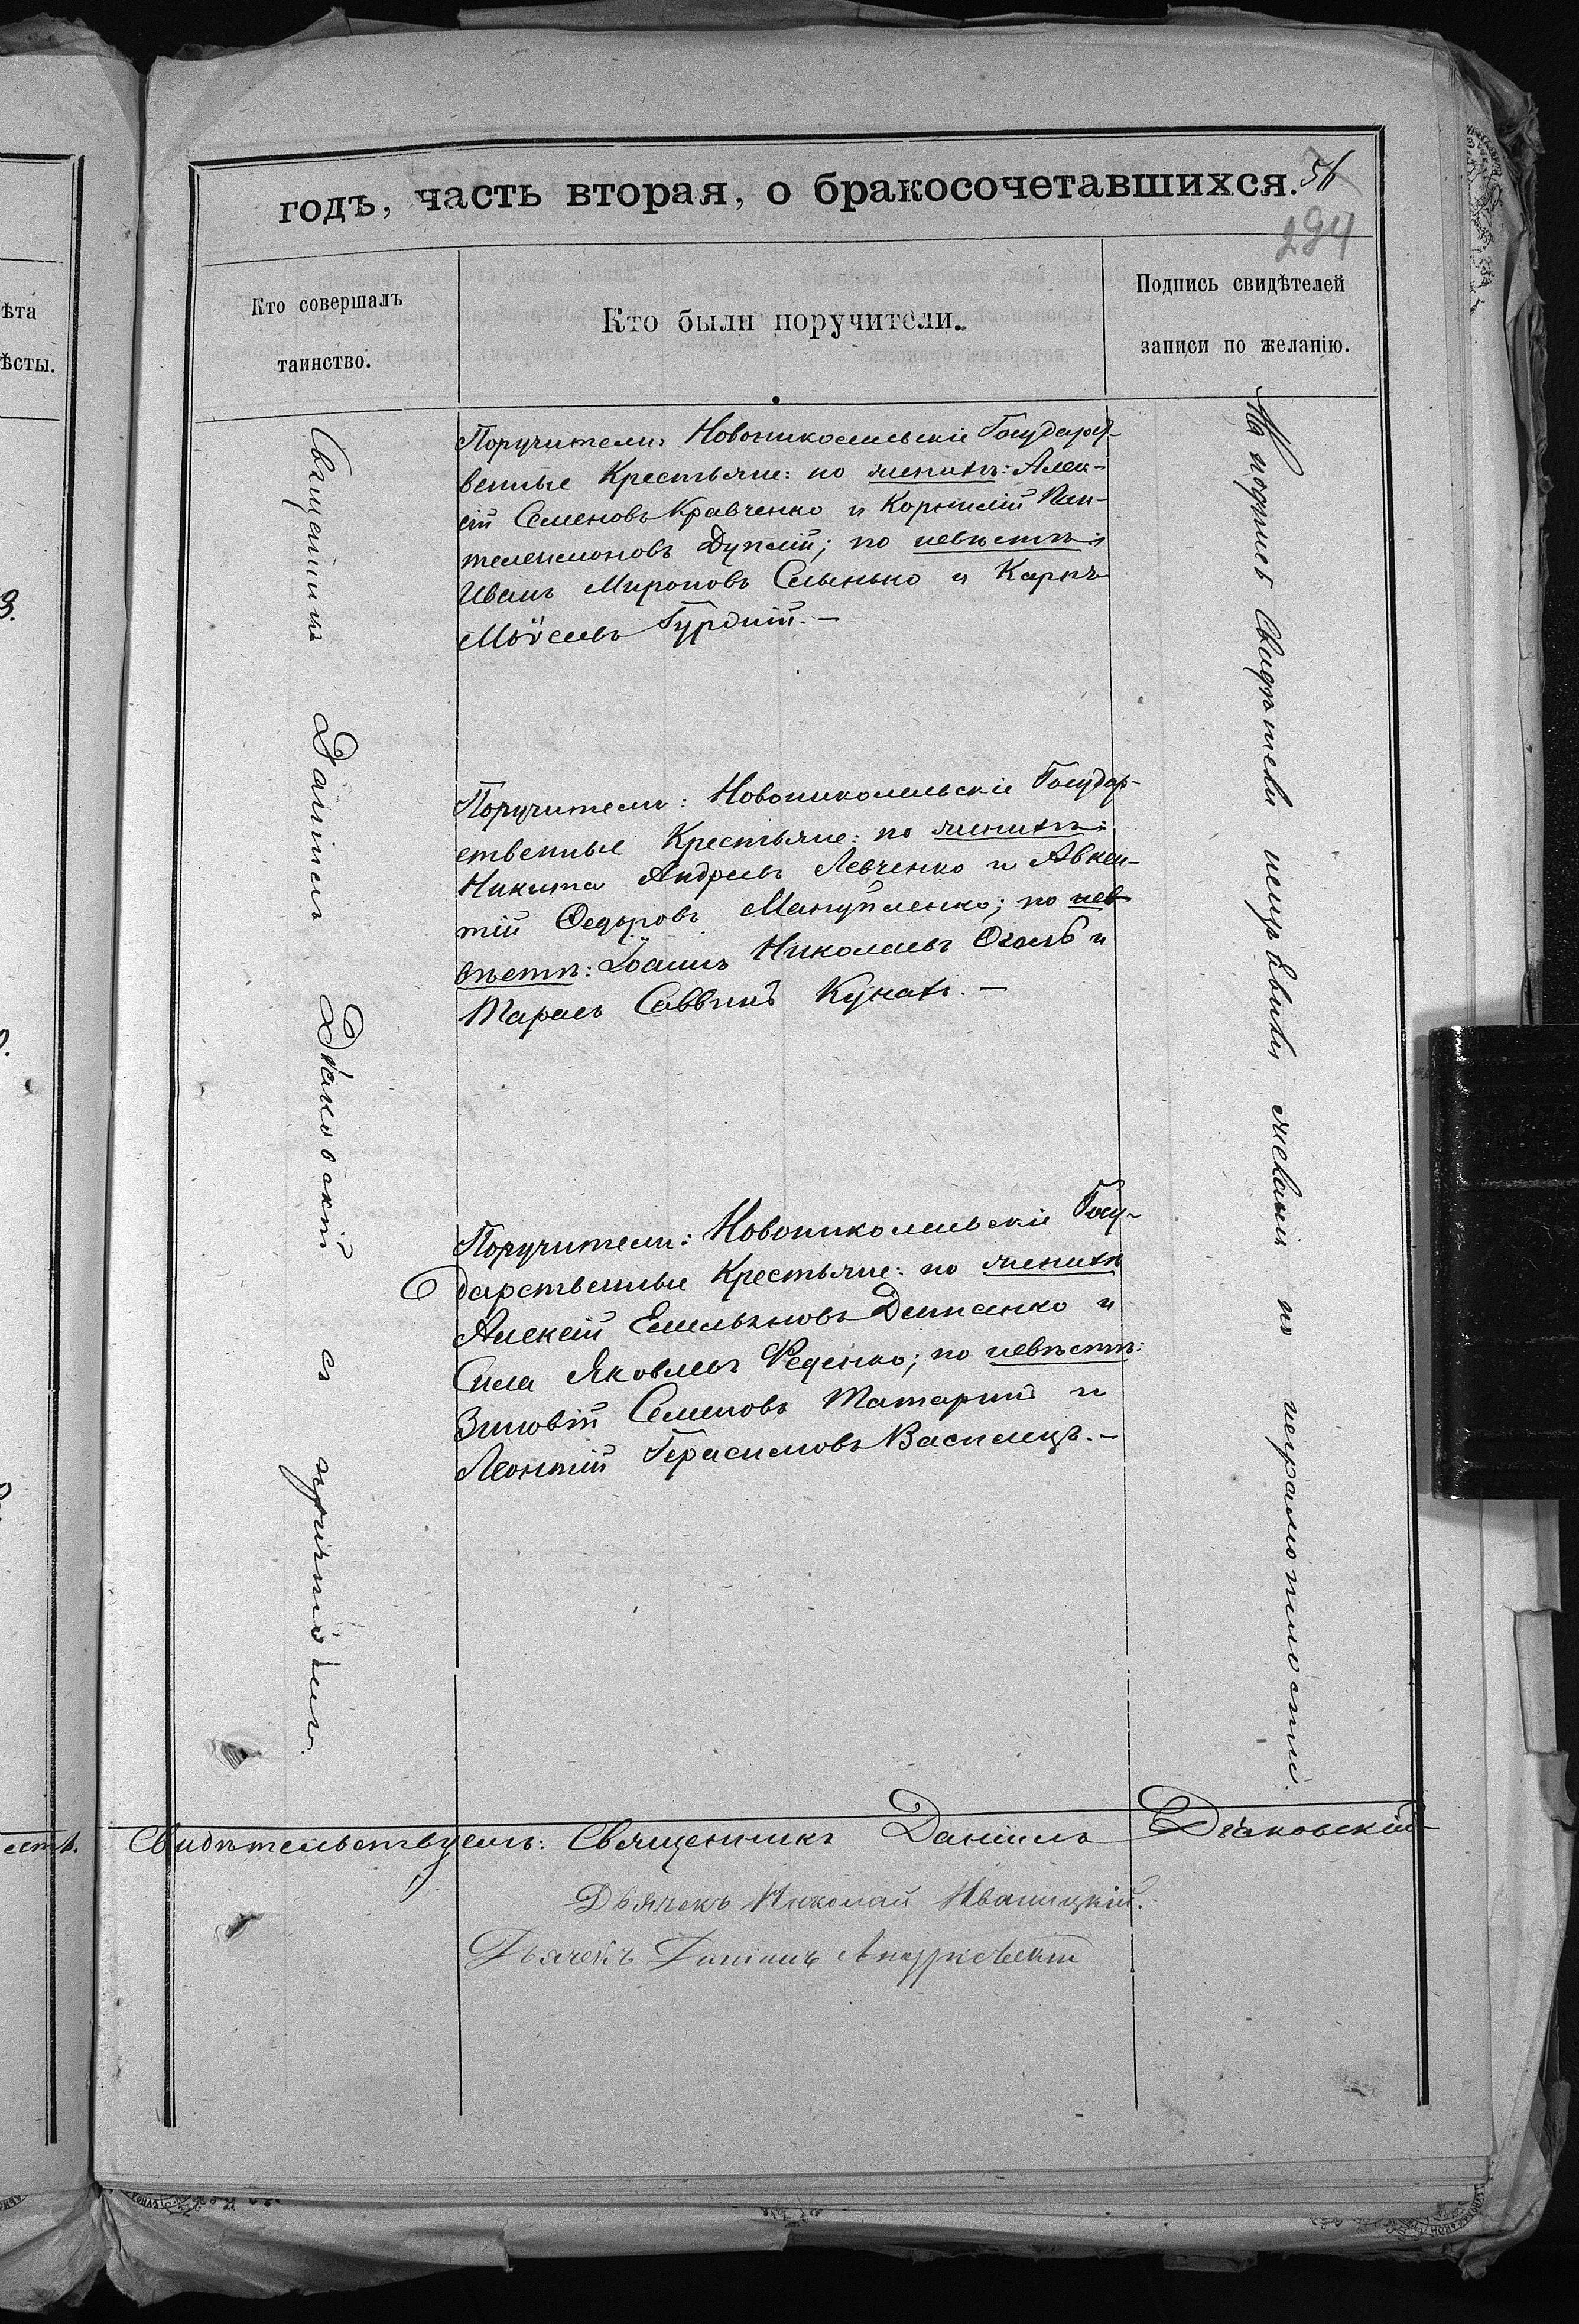 годъ, часть вторая, о бракосочетавшихся.
56
294
ѣта
ѣсты.
Кто совершалъ
таинство.
Кто были поручители.
Подпись свидѣтелей
записи по желанію.
Поручители: Новоникольскіе Государст-
венные Крестьяне: по женихѣ: Алек-
сій Семеновъ Кравченко и Корнилій Пан-
телеимоновъ Дуплій; по невѣстѣ:
Иванъ Мироновъ Сенько и Карпъ
Моѵсеевъ Гурдій.—
Поручители: Новоникольскіе Государ-
ственные Крестьяне: по женихѣ:
Никита Андреевъ Левченко и Авксен-
тій Ѳедоровъ Мануйленко; по нев-
вѣстѣ: Іоаннъ Николаевъ и
Тарасъ Саввинъ Кунахъ.—
Поручители: Новоникольскіе Госу-
дарственные Крестьяне: по женихѣ
Алексій Емельяновъ и
Сила Яковлевъ Феденко; по невѣстѣ:
Зиновій Семеновъ Татаринъ и
Леонтій Герасимовъ Василецъ.—
Священникъ Даніилъ Дьяковскій съ причтомъ.
На подпись свидѣтели неизъявили желанія по неграмотности.
Свидѣтельствуемъ: Священникъ Даніилъ Дьяковскій
Дьячекъ Николай Иваницкій.
Дьячекъ Даніилъ Андріевскій